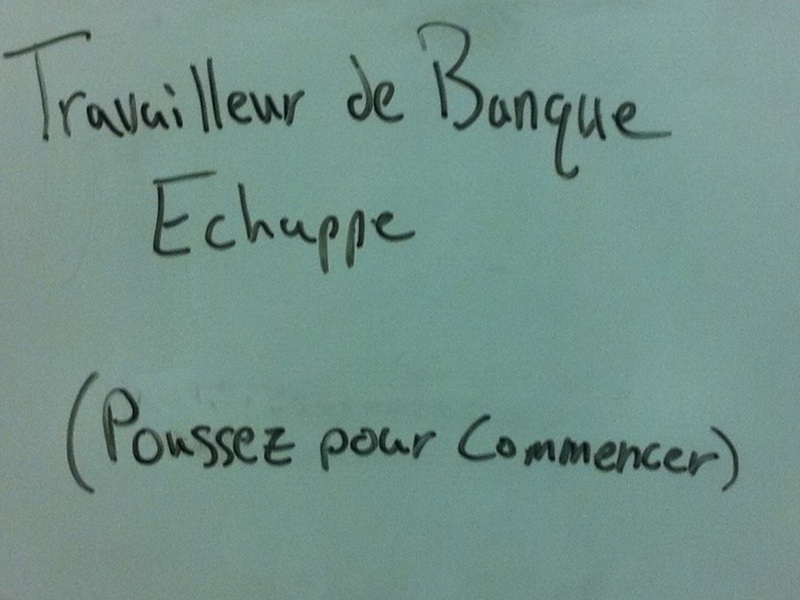 Travailleur de Banque
Echappe
(Poussez pour Commencer)